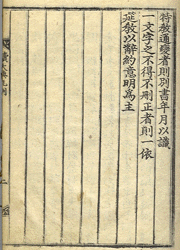 特敎通變者則別書年月以識
一文字之不得不刊正者則一依
筵敎以辭約意明爲主
續大典凡例
二